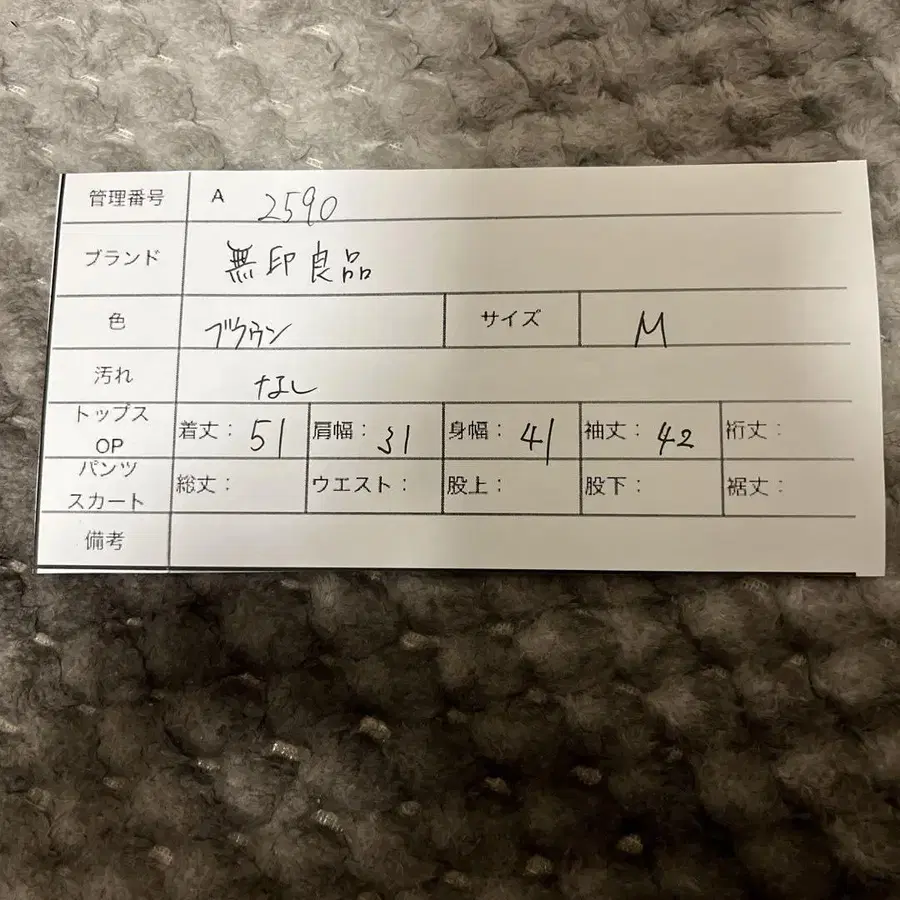 管理番号 A 2590
ブランド 無印良品
色 ブラウン サイズ M
汚れ なし
トップス
OP 着丈： 51 肩幅： 31 身幅： 41 袖丈： 42 裄丈：
パンツ
スカート 総丈： ウエスト： 股上： 股下： 裾丈：
備考